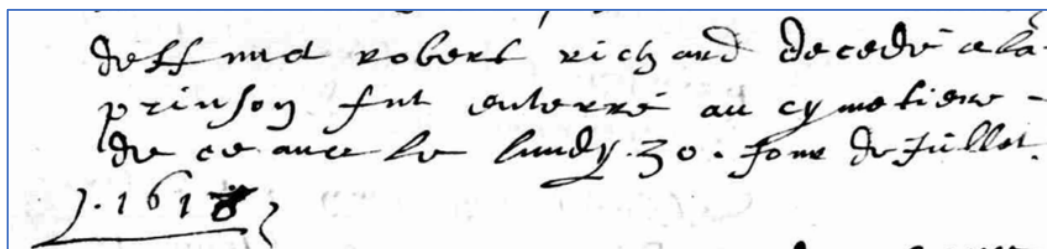 deffunct robert richard decedé a la
prinson fut enterré au cymetiere -
de ce ance le lundy . 30 . Jour de Juillet .
J . 1618